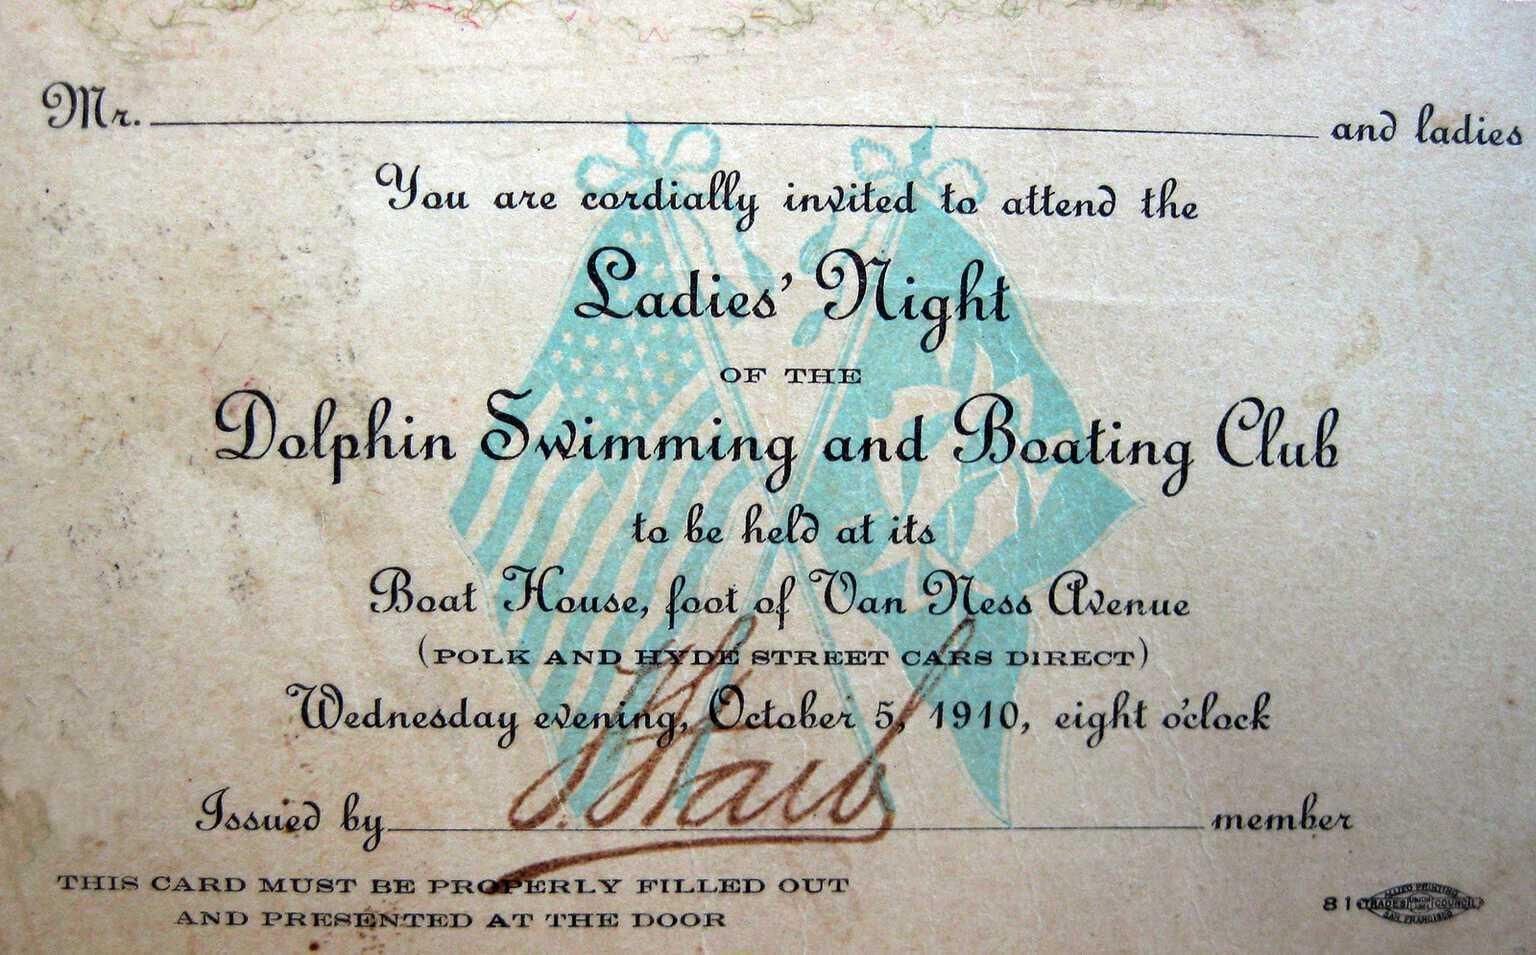 Mr. and ladies
You are cordially invited to attend the
Ladies' Night
OF THE
Dolphin Swimming and Boating Club
to be held at its
Boat House, foot of Van Ness Avenue
(POLK AND HYDE STREET CARS DIRECT)
Wednesday evening, October 5, 1910, eight o'clock
Issued by member
THIS CARD MUST BE PROPERLY FILLED OUT
AND PRESENTED AT THE DOOR
ALLIED PRINTING
TRADES UNION COUNCIL
SAN FRANCISCO